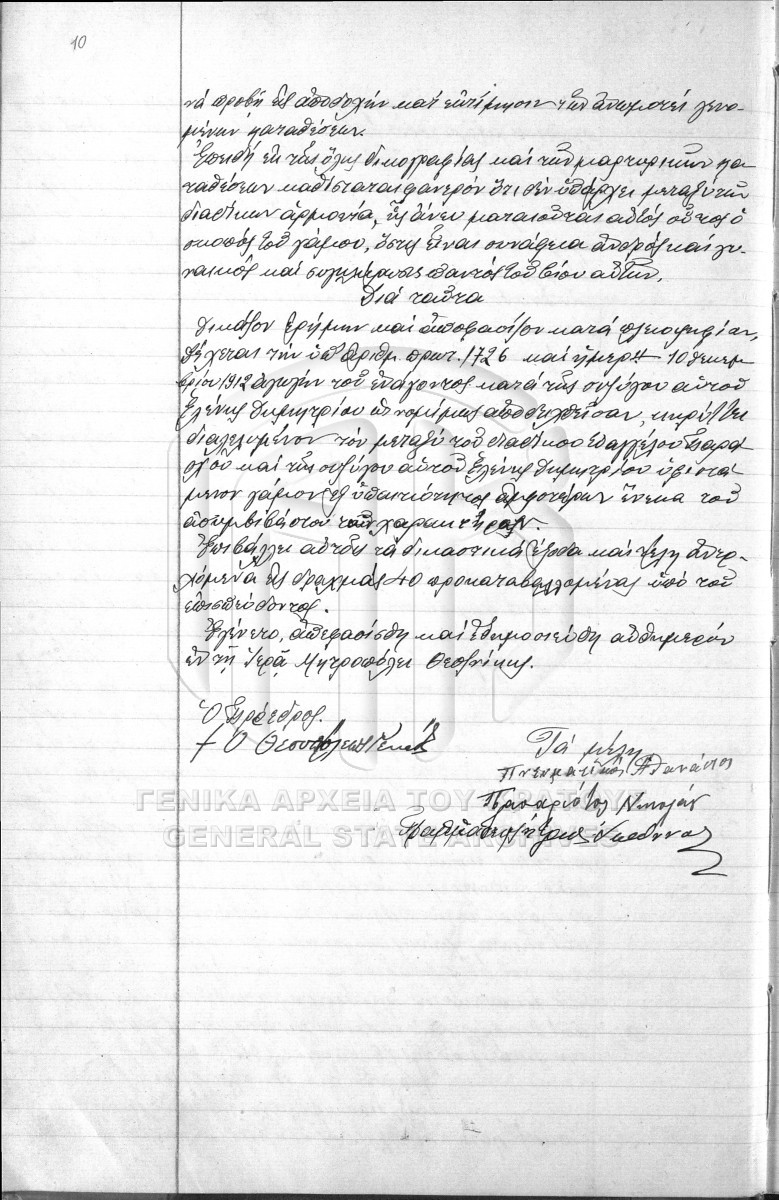 10
νὰ προβῇ εἰς ἀποδοχὴν καὶ ἐκτίμησιν τῶν ἀνωμοτεὶ γενο-
μένων καταθέσεων.
Ἐπειδὴ ἐκ τῆς ὅλης δικογραφίας καὶ τῶν μαρτυρικῶν κα-
ταθέσεων καθίσταται φανερὸν ὅτι δὲν ὑπάρχει μεταξὺ τῶν
διαδίκων ἁρμονία, ἧς ἄνευ ματαιοῦται αὐτὸς οὗτος ὁ
σκοπὸς τοῦ γάμου, ὅστις εἶναι συνάφεια ἀνδρὸς καὶ γυ-
ναικὸς καὶ συγκλήρωσις παντὸς τοῦ βίου αὐτῶν.
Διὰ ταῦτα
Δικάζον ἐρήμην καὶ ἀποφασίζον κατὰ πλειοψηφίαν,
δέχεται τὴν ὑπ' ἀριθμ. πρωτ. 1726 καὶ ἡμερ. 10 δεκεμ-
βρίου 1912 ἀγωγὴν τοῦ ἐνάγοντος κατὰ τῆς συζύγου αὐτοῦ
Ἑλένης Δημητρίου ὡς νομίμως ἀποδειχθεῖσαν, κηρύττει
διαλελυμένον τὸν μεταξὺ τοῦ διαδίκου Εὐαγγέλου
καὶ τῆς συζύγου αὐτοῦ Ἑλένης Δημητρίου ὑφιστά-
μενον γάμον ἐξ ὑπαιτιότητος ἀμφοτέρων ἕνεκα τοῦ
ἀσυμβιβάστου τῶν χαρακτήρων.
Ἐπιβάλλει αὐτοῖς τὰ δικαστικὰ ἔξοδα καὶ τέλη ἀνερ-
χόμενα εἰς δραχμὰς 40 προκαταβαλλομένας ὑπὸ τοῦ
ἐπισπεύδοντος.
Ἐγένετο, ἀπεφασίσθη καὶ ἐδημοσιεύθη αὐθημερὸν
ἐν τῇ Ἱερᾷ Μητροπόλει Θεσ/νίκης.
Ὁ Πρόεδρος
† Ὁ Θεσσαλονίκης
Τὰ μέλη
Πνευματικὸς Ἀθανάσιος
ΓΕΝΙΚΑ ΑΡΧΕΙΑ ΤΟΥ ΚΡΑΤΟΥΣ
GENERAL STATE ARCHIVES